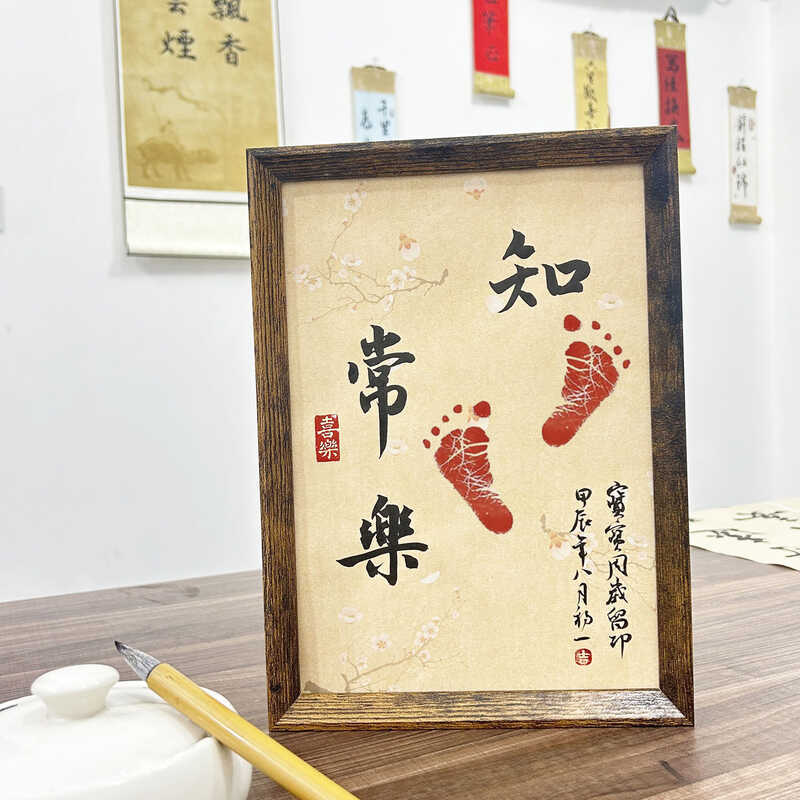 飄香
煙
知
常樂
喜樂
寶寶周歲留印
甲辰年八月初一
吉